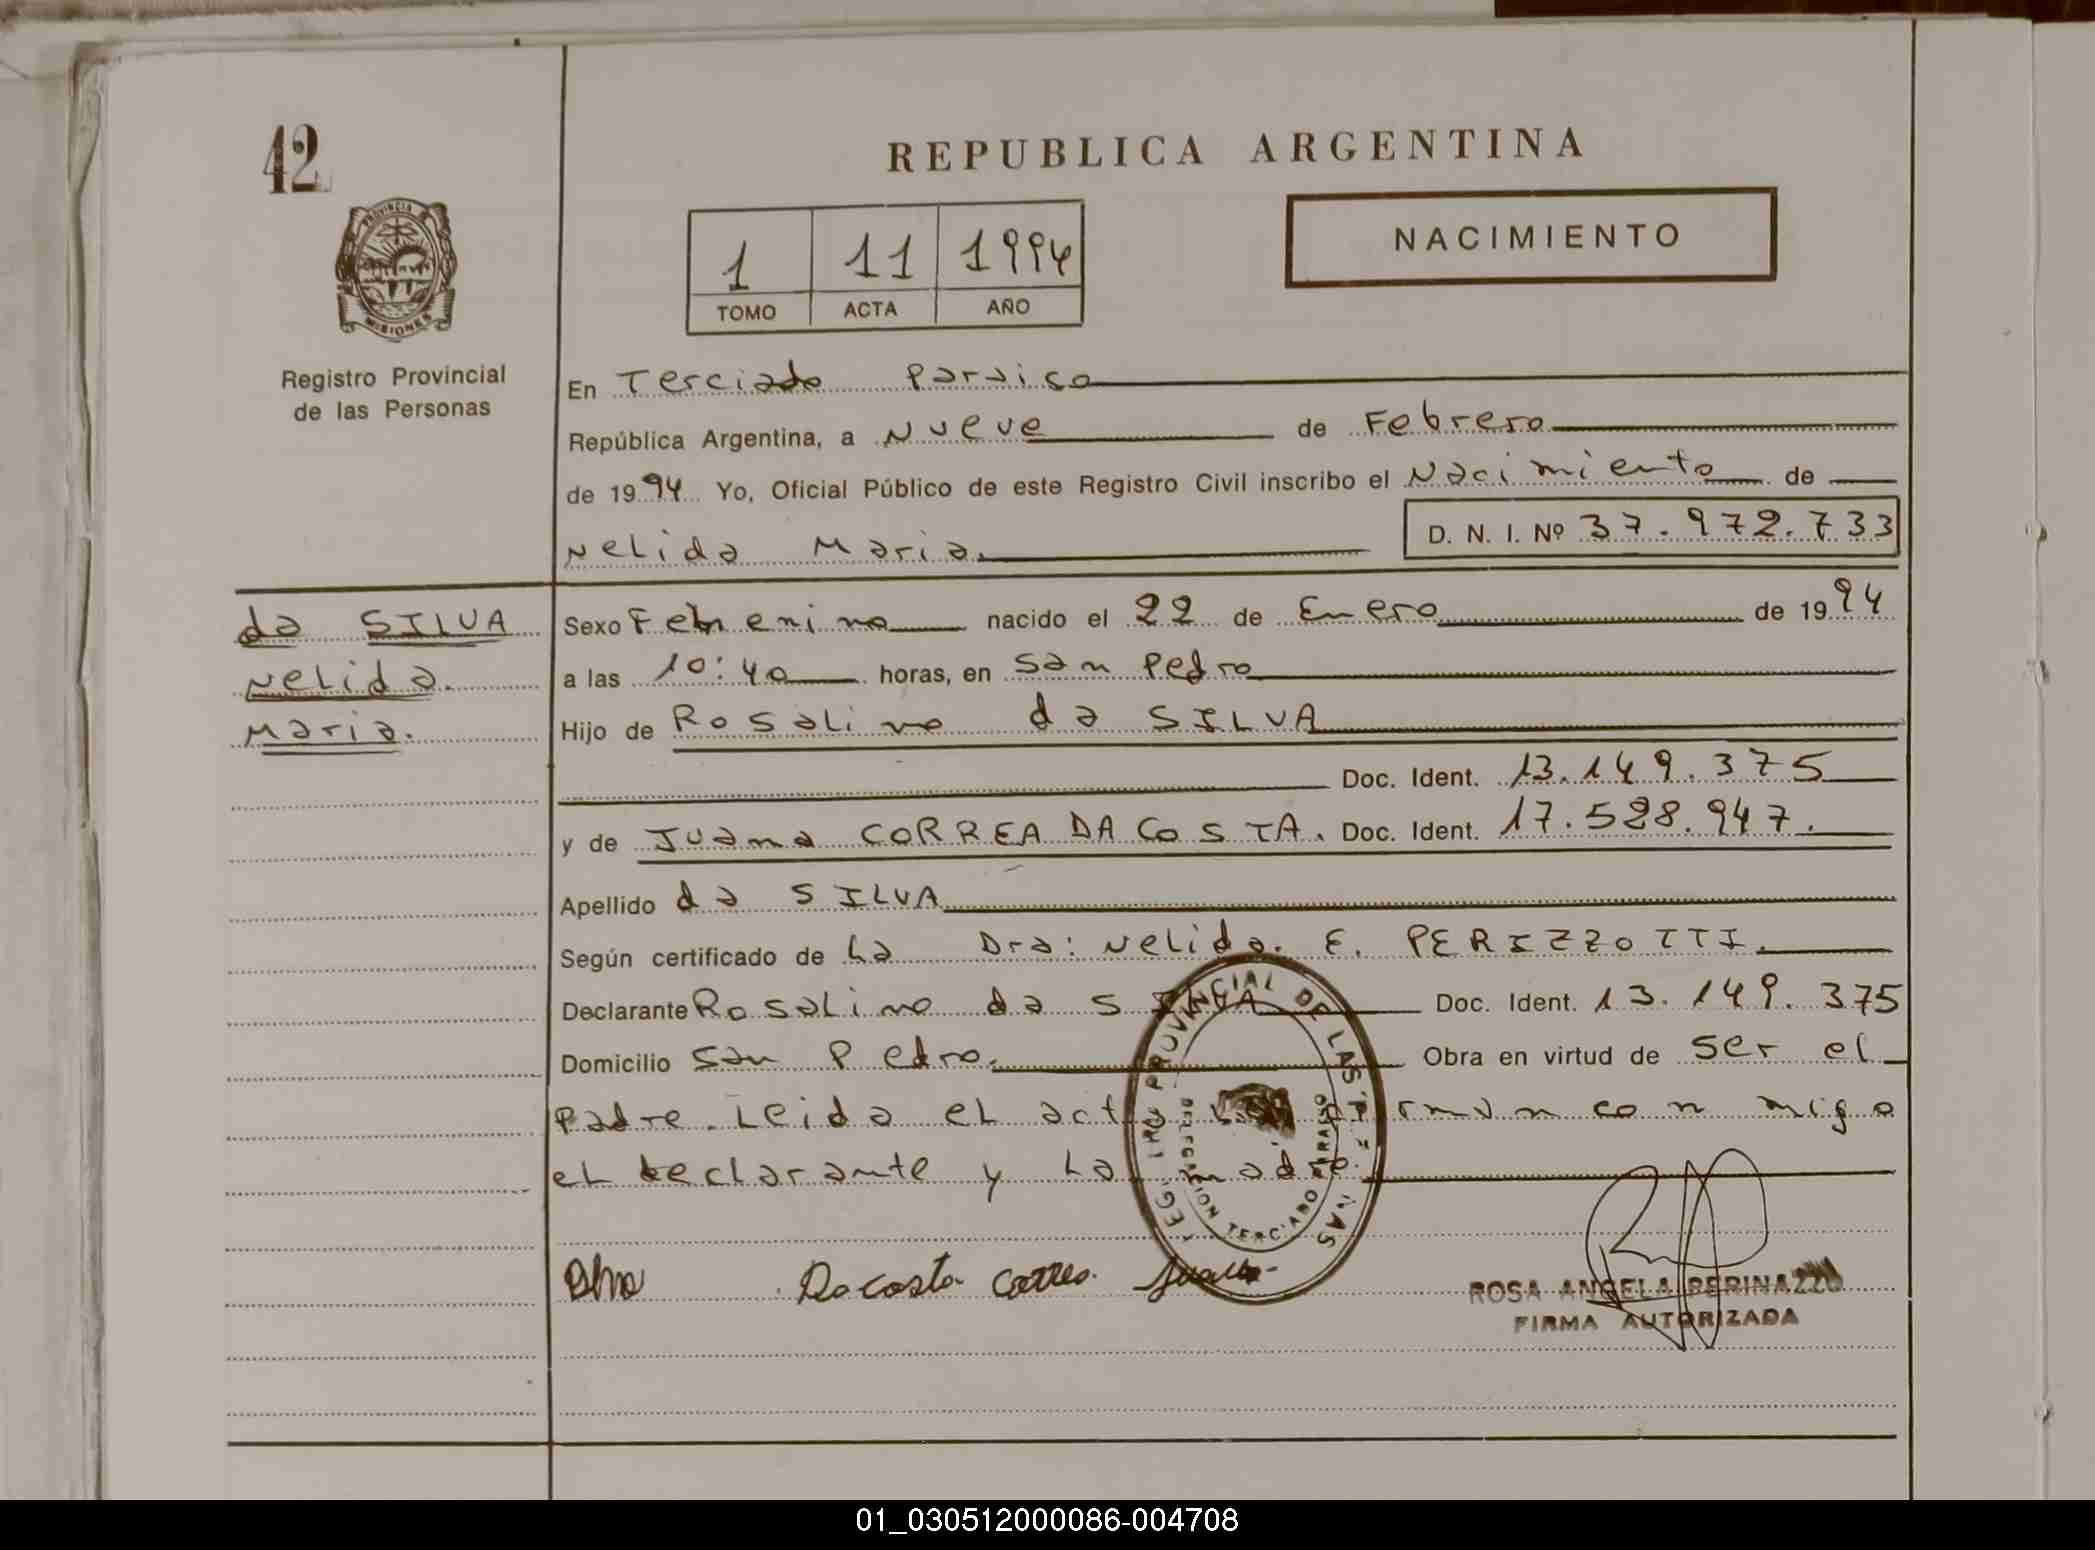 42
REPUBLICA ARGENTINA
NACIMIENTO
1 11 1994
TOMO ACTA AÑO
PROVINCIA
MISIONES
Registro Provincial
de las Personas
En Terciado Paraiso
República Argentina, a Nueve de Febrero
de 1994 Yo, Oficial Público de este Registro Civil inscribo el Nacimiento de
Nelida Maria. D. N. I. Nº 37.972.733
da SILVA
Nelida.
Maria.
Sexo Femenino nacido el 22 de Enero de 1994
a las 10:40 horas, en San Pedro
Hijo de Rosalino da SILVA
Doc. Ident. 13.149.375
y de Juana CORREA DA COSTA. Doc. Ident. 17.528.947.
Apellido da SILVA
Según certificado de La Dra: Nelida. E. PERIZZOTTI.
Declarante Rosalino da SILVA Doc. Ident. 13.149.375
Domicilio San Pedro. Obra en virtud de Ser el
Padre. Leida el acta conmigo
el declarante y La madre.
PROVINCIAL DE LAS
DELEGACION TERCIADO PARAISO
Dacosta Correa Juana
ROSA ANGELA BERINAZZO
FIRMA AUTORIZADA
01_030512000086-004708